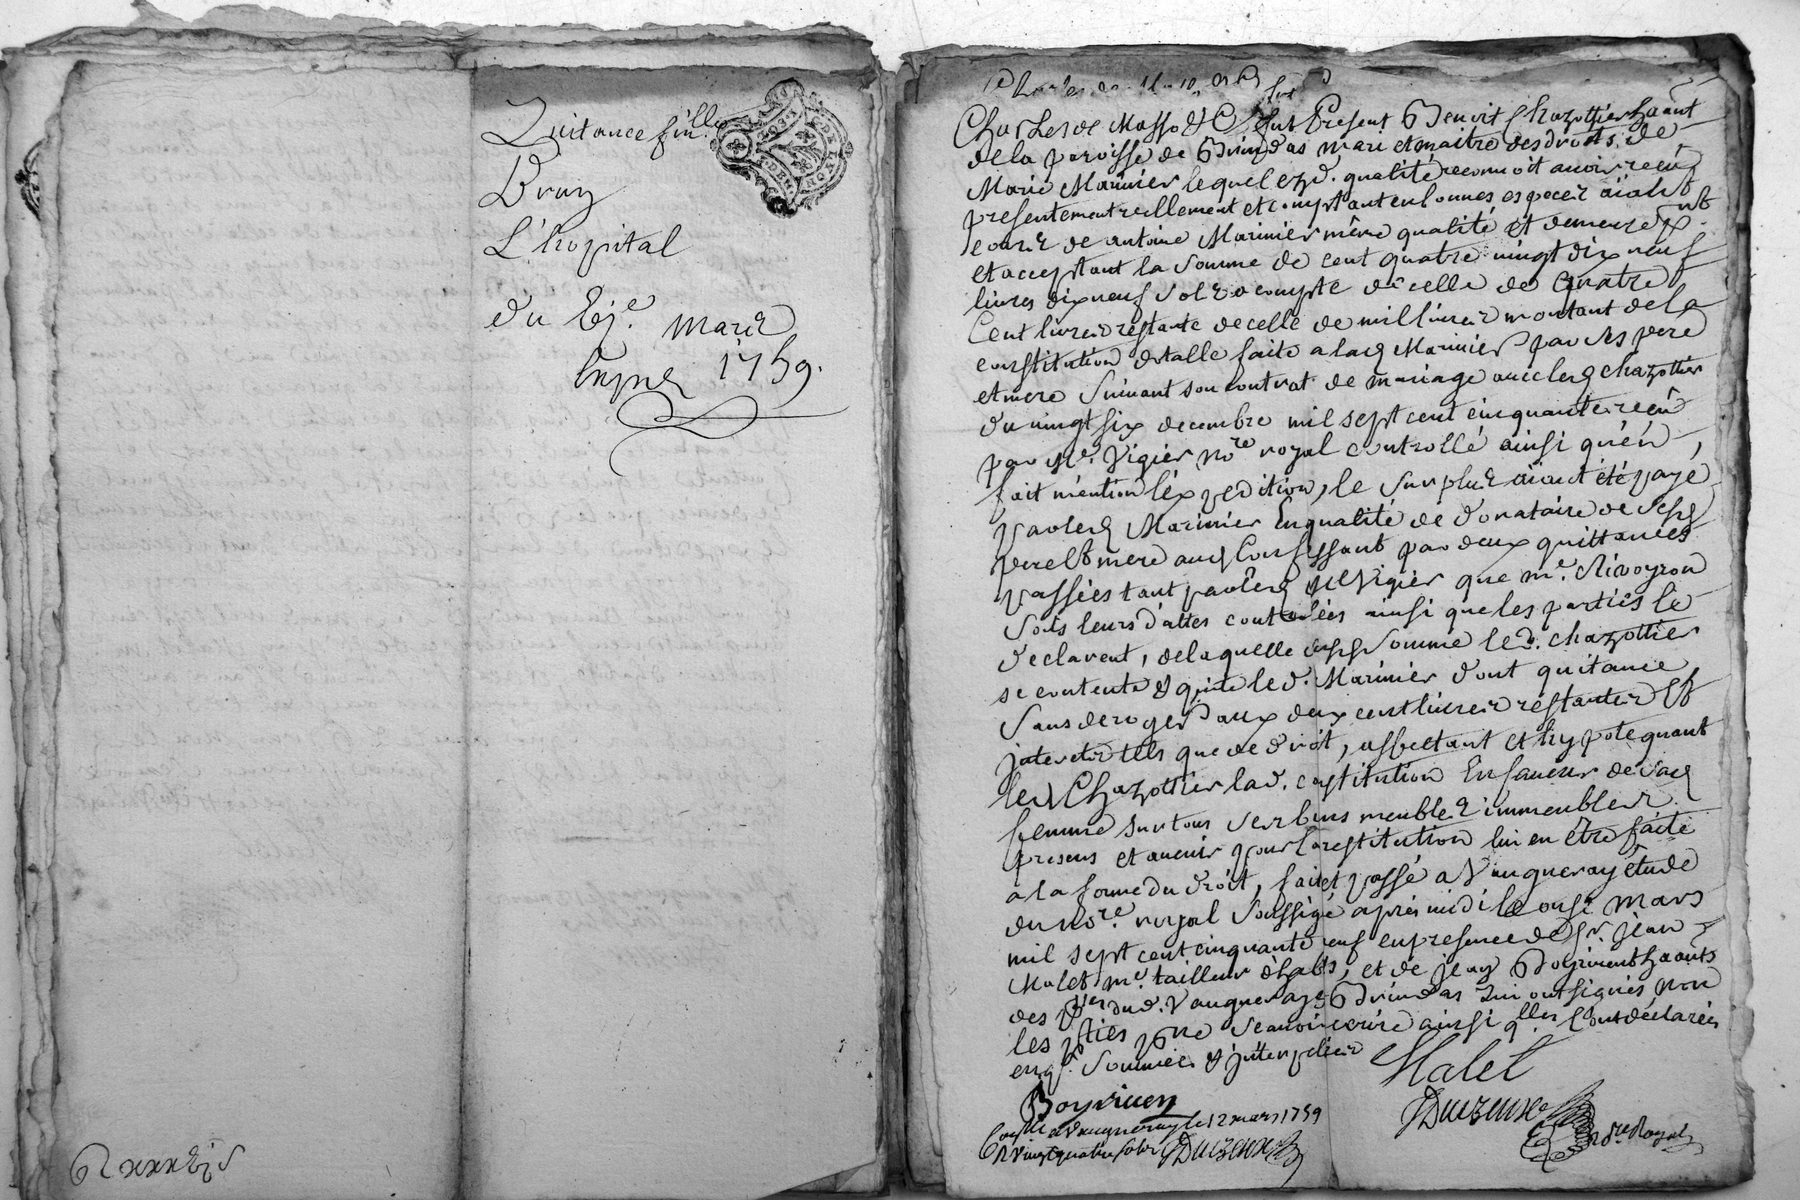 Quitance fin.lle
Brun
L'hopital
du
mars
1759.
fut Present Benoit Chazottier haânt
de la paroisse de Brindas mari et maitre des droits de
Marie Marinier lequel end. qualité reconnoit avoir reçû
presentement reellement et comptant en bonnes especes aïant
cours de antoine Marinier même qualité et demeure pnt
et acceptant la somme de cent quatre vingt dix neuf
livres dix neuf sols a compte de celle de quatre
Cent livres restante de celle de mil livres montant de la
constitution dotalle faite a lad Marinier par ses pere
et mere suivant son contrat de mariage avec led chazottier
du vingt six decembre mil sept cent cinquante reçû
par Me. Vigier nore royal controllé ainsi qu'en
fait mention l'expedition, le surplus aïant été payé
par led Marinier En qualité de donataire de sesd
pere et mere aud Confessant par deux quittances
passées tant par led Me Vigier que me. Rivoyron
sous leurs dattes controlées ainsi que les parties le
declarent, de laquelle susd somme led. chazottier
se contente et quite led. Marinier dont quitance
sans deroger aux deux cent livres restantes et
interets tels que de droit, affectant et hypotequant
led Chazottier lad. constitution En faveur de sad
femme sur tous ses biens meubles immeubles
presens et avenir pour la restitution lui en être faite
a la forme du droit, fait et passé a Vaugneray étude
du nore. royal soussigné après midi le onze mars
mil sept cent cinquante neuf en presence de sr. jean
Malet me. tailleur d'habits, et de jean Boyrivent haânts
des dud. Vaugneray et Brindas qui ont signés, non
les pties pr ne scavoir ecrire ainsi qlles l'ont déclarées
enq. sommées et interpelées
Malet
Boyriven
Conllé a Vaugneray le 12 mars 1759
R vingt quatre sols
nore Royal